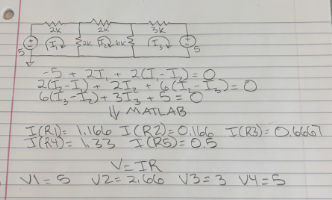 2K 2K 3K
5 I₁ 2K I₂ 6K I₃ 5
-5 + 2I₁ + 2(I₁-I₂) = 0
2(I₂-I₁) + 2I₂ + 6(I₂-I₃) = 0
6(I₃-I₂) + 3I₃ + 5 = 0
⇓ MATLAB
I(R1) = 1.166 I(R2) = 0.166 I(R3) = 0.6667
I(R4) = 1.33 I(R5) = 0.5
V = IR
V1 = 5 V2 = 2.66 V3 = 3 V4 = 5